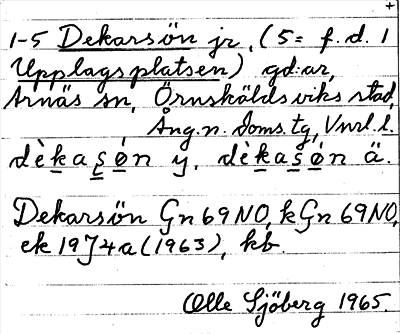 +
1-5 Dekarsön jr, (5= f.d. 1
Upplagsplatsen) gd:ar,
Arnäs sn, Örnsköldsviks stad,
Ång.n. doms.tg, Vnrl.l.
dèkaṣón y, dèkaṣón ä.
Dekarsön Gn 69 NO, kGn 69 NO,
ek 19J4a (1963), kb.
Olle Sjöberg 1965.